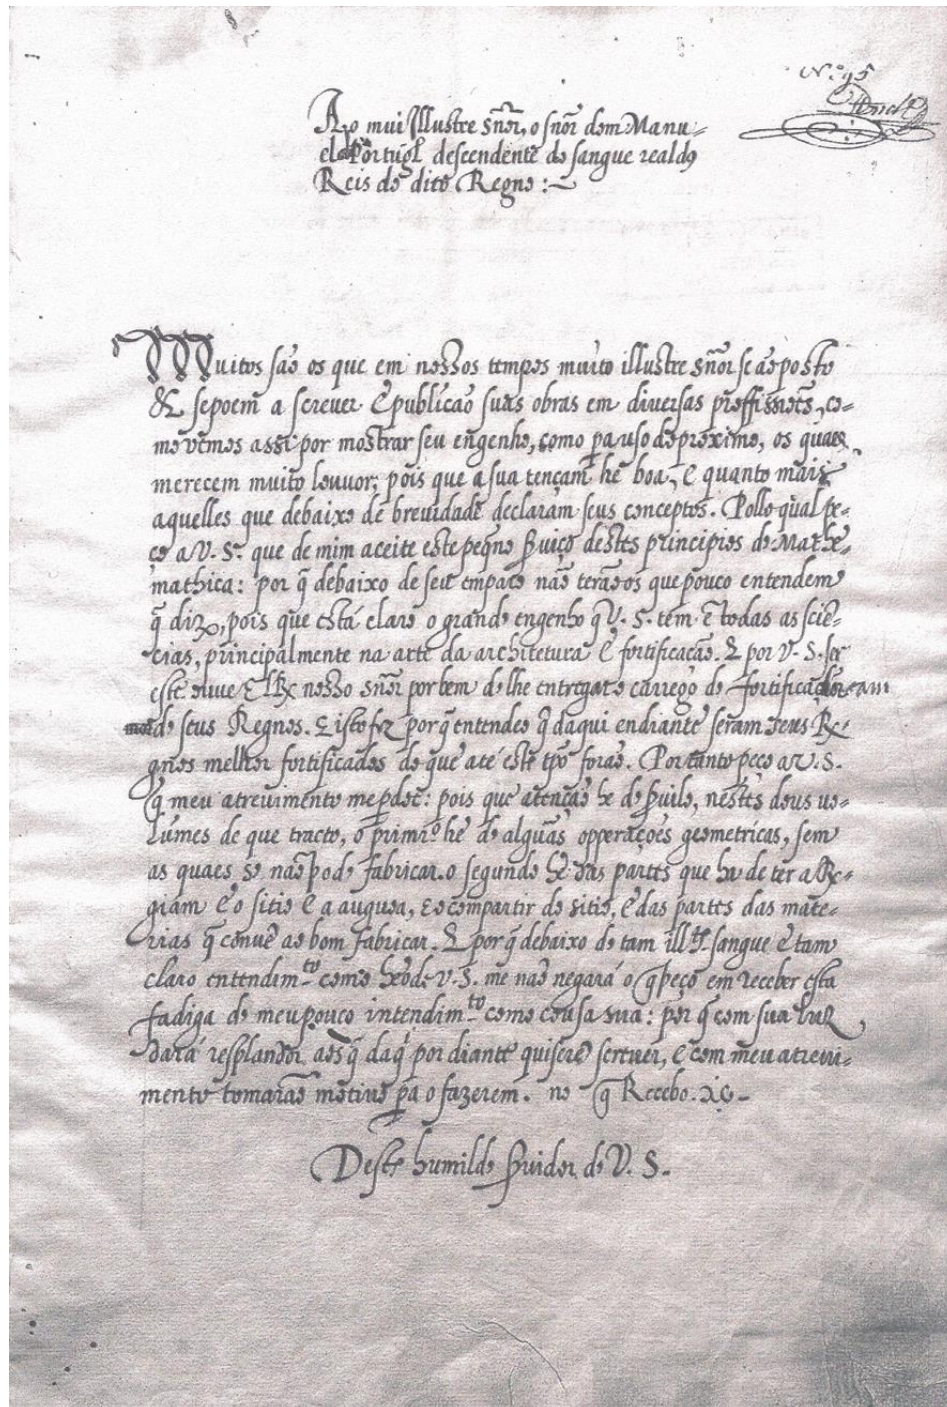 Nº 95
Ao mui Illustre Sñor, o sñor dom Manu-
el de Portugl descendente do sangue real dos
Reis do dito Regno :~
Muitos são os que em nossos tempos muito illustre Sñor se ão posto
& se poem a screuer E publicão suas obras em diversas proffissiões, co-
mo vemos assi por mostrar seu engenho, como pa uso do proximo, os quaes
merecem muito louuor; pois que a sua tençam he boa, E quanto mais
aquelles que debaixo de brevidade declaram seus conceptos. Pollo qual pe-
ço a V. S. que de mim aceite este peqno sruiço destes principios de Mathe-
mathica: por q̃ debaixo de seu emparo não terão os que pouco entendem
q̃ dizer, pois que está claro o grande engenho q̃ V. S. tem ẽ todas as scië-
cias, principalmente na arte da architetura E fortificação. & por V. S. ser
este ouue El Rx nosso sñor por bem de lhe entregar o carrego de fortificador
de seus Regnos. E isto fez por q̃ entendeo q̃ daqui endiante seram seus Re-
gnos melhor fortificados do que até este tpo forão. Por tanto peço a V. S.
q̃ meu atrevimento me perdoe: pois que a tenção he de sruilo, nestes dous vo-
lumes de que tracto, o primro he de algũas opperações geometricas, sem
as quaes se não pode fabricar. o segundo he das partes que ha de ter a Re-
giam E o sitio E a auguoa, E o compartir do sitio, E das partes das mate-
rias q̃ convẽ ao bom fabricar. & por q̃ debaixo de tam illte sangue E tam
claro entendimto como he o de V. S. me não negará o q̃ peço em receber esta
fadiga de meu pouco intendimto como cousa sua: por q̃ com sua luz
dará resplandor aos q̃ daq̃ por diante quiserẽ screuer, E com meu atrevi-
mento tomarão motivo pa o fazerem. no q̃ Recebo.
Deste humilde sruidor de V. S.